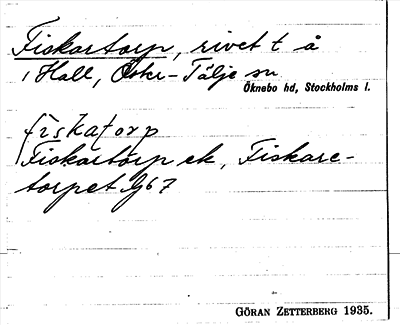 Fiskartorp, rivet t å
i Hall, Öster-Tälje sn
Öknebo hd, Stockholms l.
fiskatorp
Fiskartorp ek, Fiskare-
torpet G67
GÖRAN ZETTERBERG 1935.